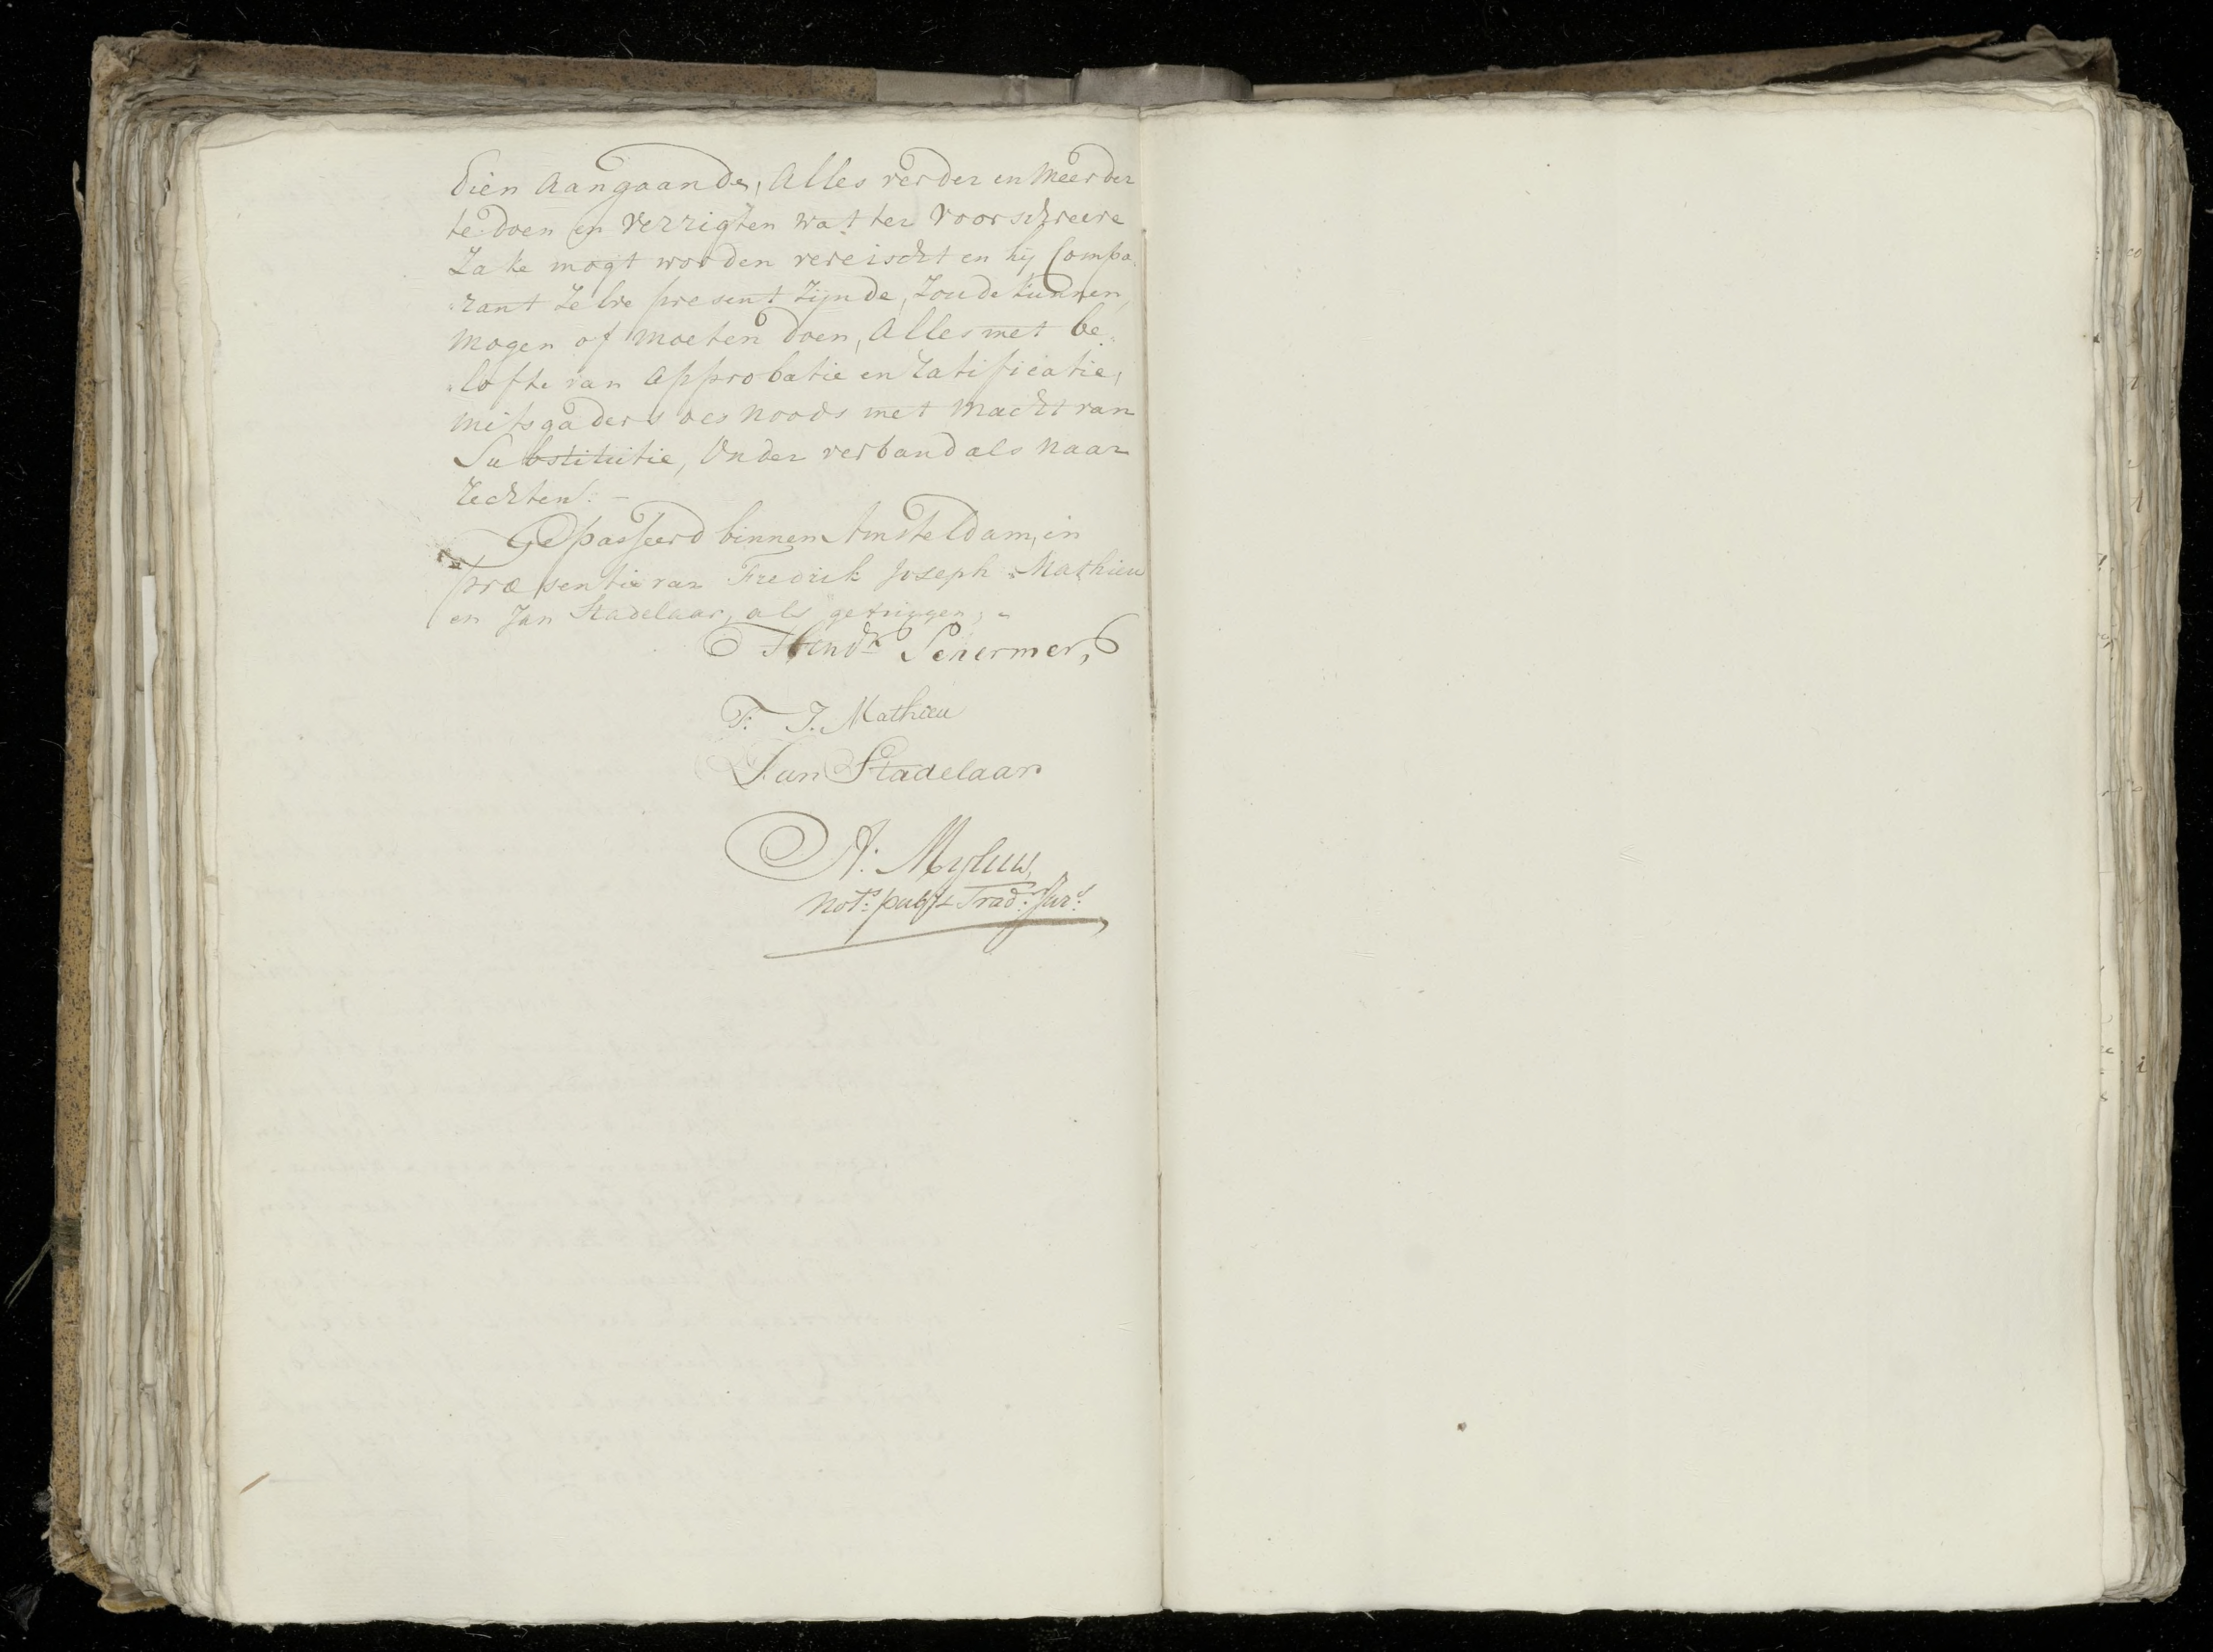 dien aangaande, Alles verder en meerder
te doen en verrigten wat ter voorschreeve
Zake mogt worden vereischt en hij Compa„
„rant Zelve present Zijnde, Zoude kunnen,
mogen of moeten doen, Alles met be„
„lofte van Approbatie en Ratificatie,
mitsgaders des noods met macht van
Substitutie, Onder verband als naar
Rechten. –
Gepasseerd binnen Amsteldam, in
præsentie van Fredrik Joseph Mathieu
en Jan Stadelaar, als getuigen,
Hendk Schermer,
F: J. Mathieu
Jan Stadelaar
A: Mylius,
Nots: publ: & Trad: Jur: